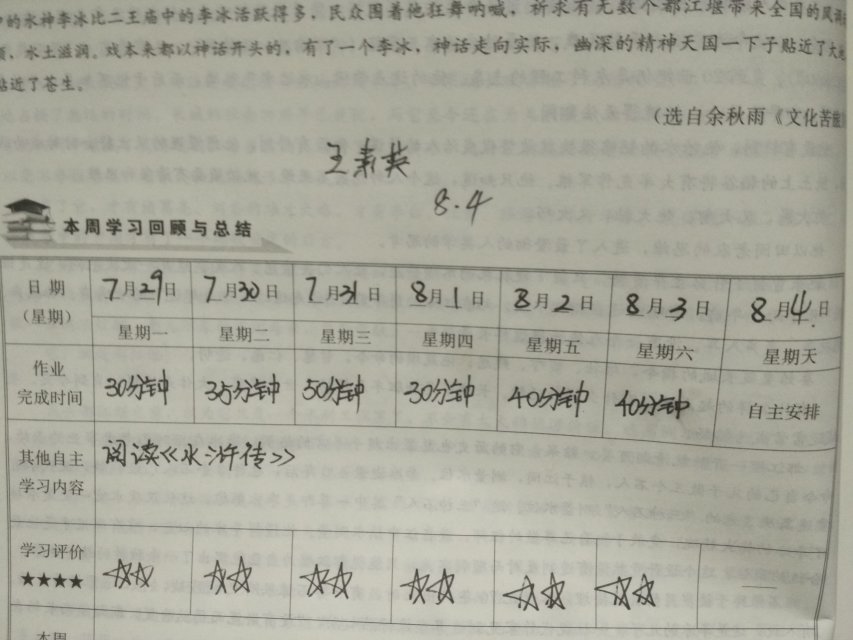 的水神李冰比二王庙中的李冰活跃得多，民众围着他狂舞呐喊，祈求有无数个都江堰带来全国的风调
、水土滋润。戏本来都以神话开头的，有了一个李冰，神话走向实际，幽深的精神天国一下子贴近了大
贴近了苍生。
（选自余秋雨《文化苦旅
8.4
本周学习回顾与总结
日期（星期） 7月29日 星期一 7月30日 星期二 7月31日 星期三 8月1日 星期四 8月2日 星期五 8月3日 星期六 8月4日 星期天
作业完成时间 30分钟 35分钟 50分钟 30分钟 40分钟 40分钟 自主安排
其他自主学习内容 阅读《水浒传》
学习评价 ★★★★ ☆☆ ☆☆ ☆☆ ☆☆ ☆☆ ☆☆
本周